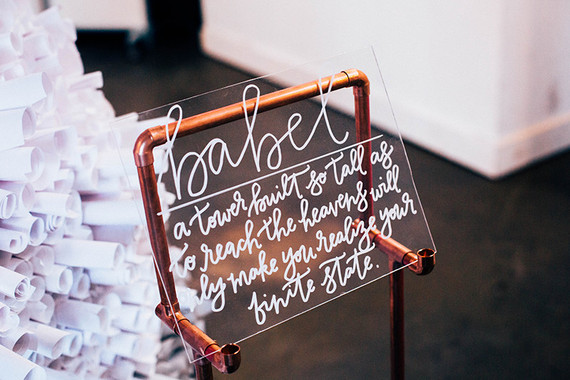 babel
a tower built so tall as
to reach the heavens will
only make you realize your
finite state.